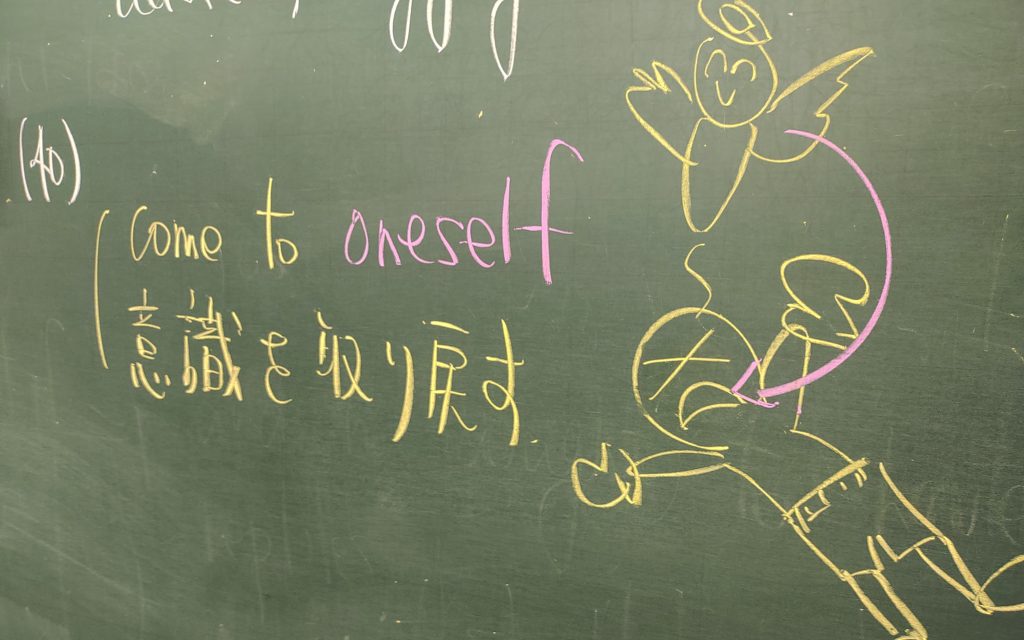 (40)
come to oneself
意識を取り戻す